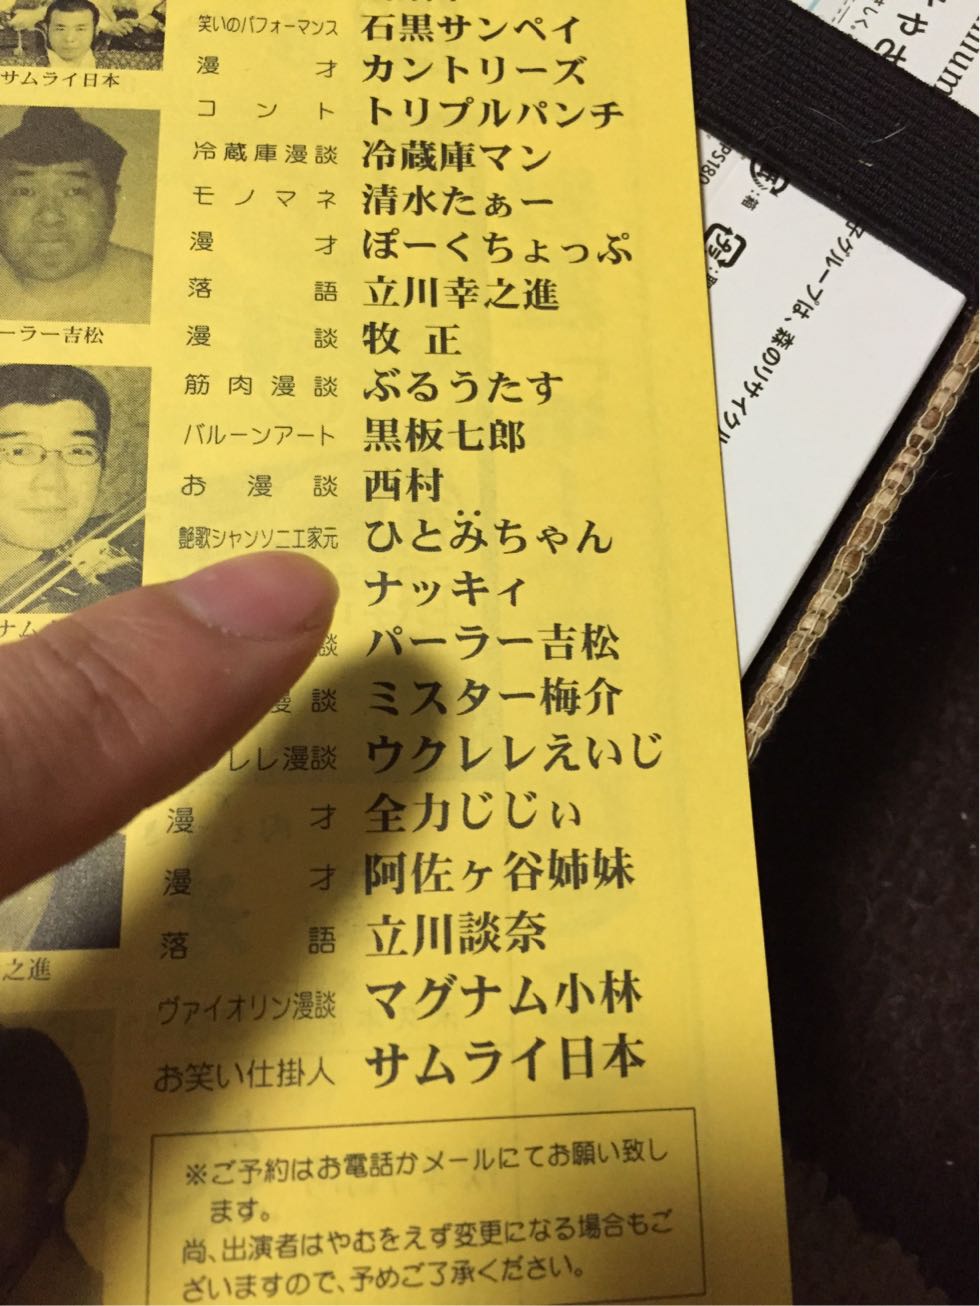 サムライ日本
ーラー吉松
ナム
之進
笑いのパフォーマンス 石黒サンペイ
漫才 カントリーズ
コント トリプルパンチ
冷蔵庫漫談 冷蔵庫マン
モノマネ 清水たぁー
漫才 ぽーくちょっぷ
落語 立川幸之進
漫談 牧正
筋肉漫談 ぶるうたす
バルーンアート 黒板七郎
お漫談 西村
艶歌シャンソニエ家元 ひとみちゃん
ナッキィ
談 パーラー吉松
漫談 ミスター梅介
レレ漫談 ウクレレえいじ
漫才 全力じじぃ
漫才 阿佐ヶ谷姉妹
落語 立川談奈
ヴァイオリン漫談 マグナム小林
お笑い仕掛人 サムライ日本
※ご予約はお電話かメールにてお願い致し
ます。
尚、出演者はやむをえず変更になる場合もご
ざいますので、予めご了承ください。
グループは、森のリサイクル
PS180